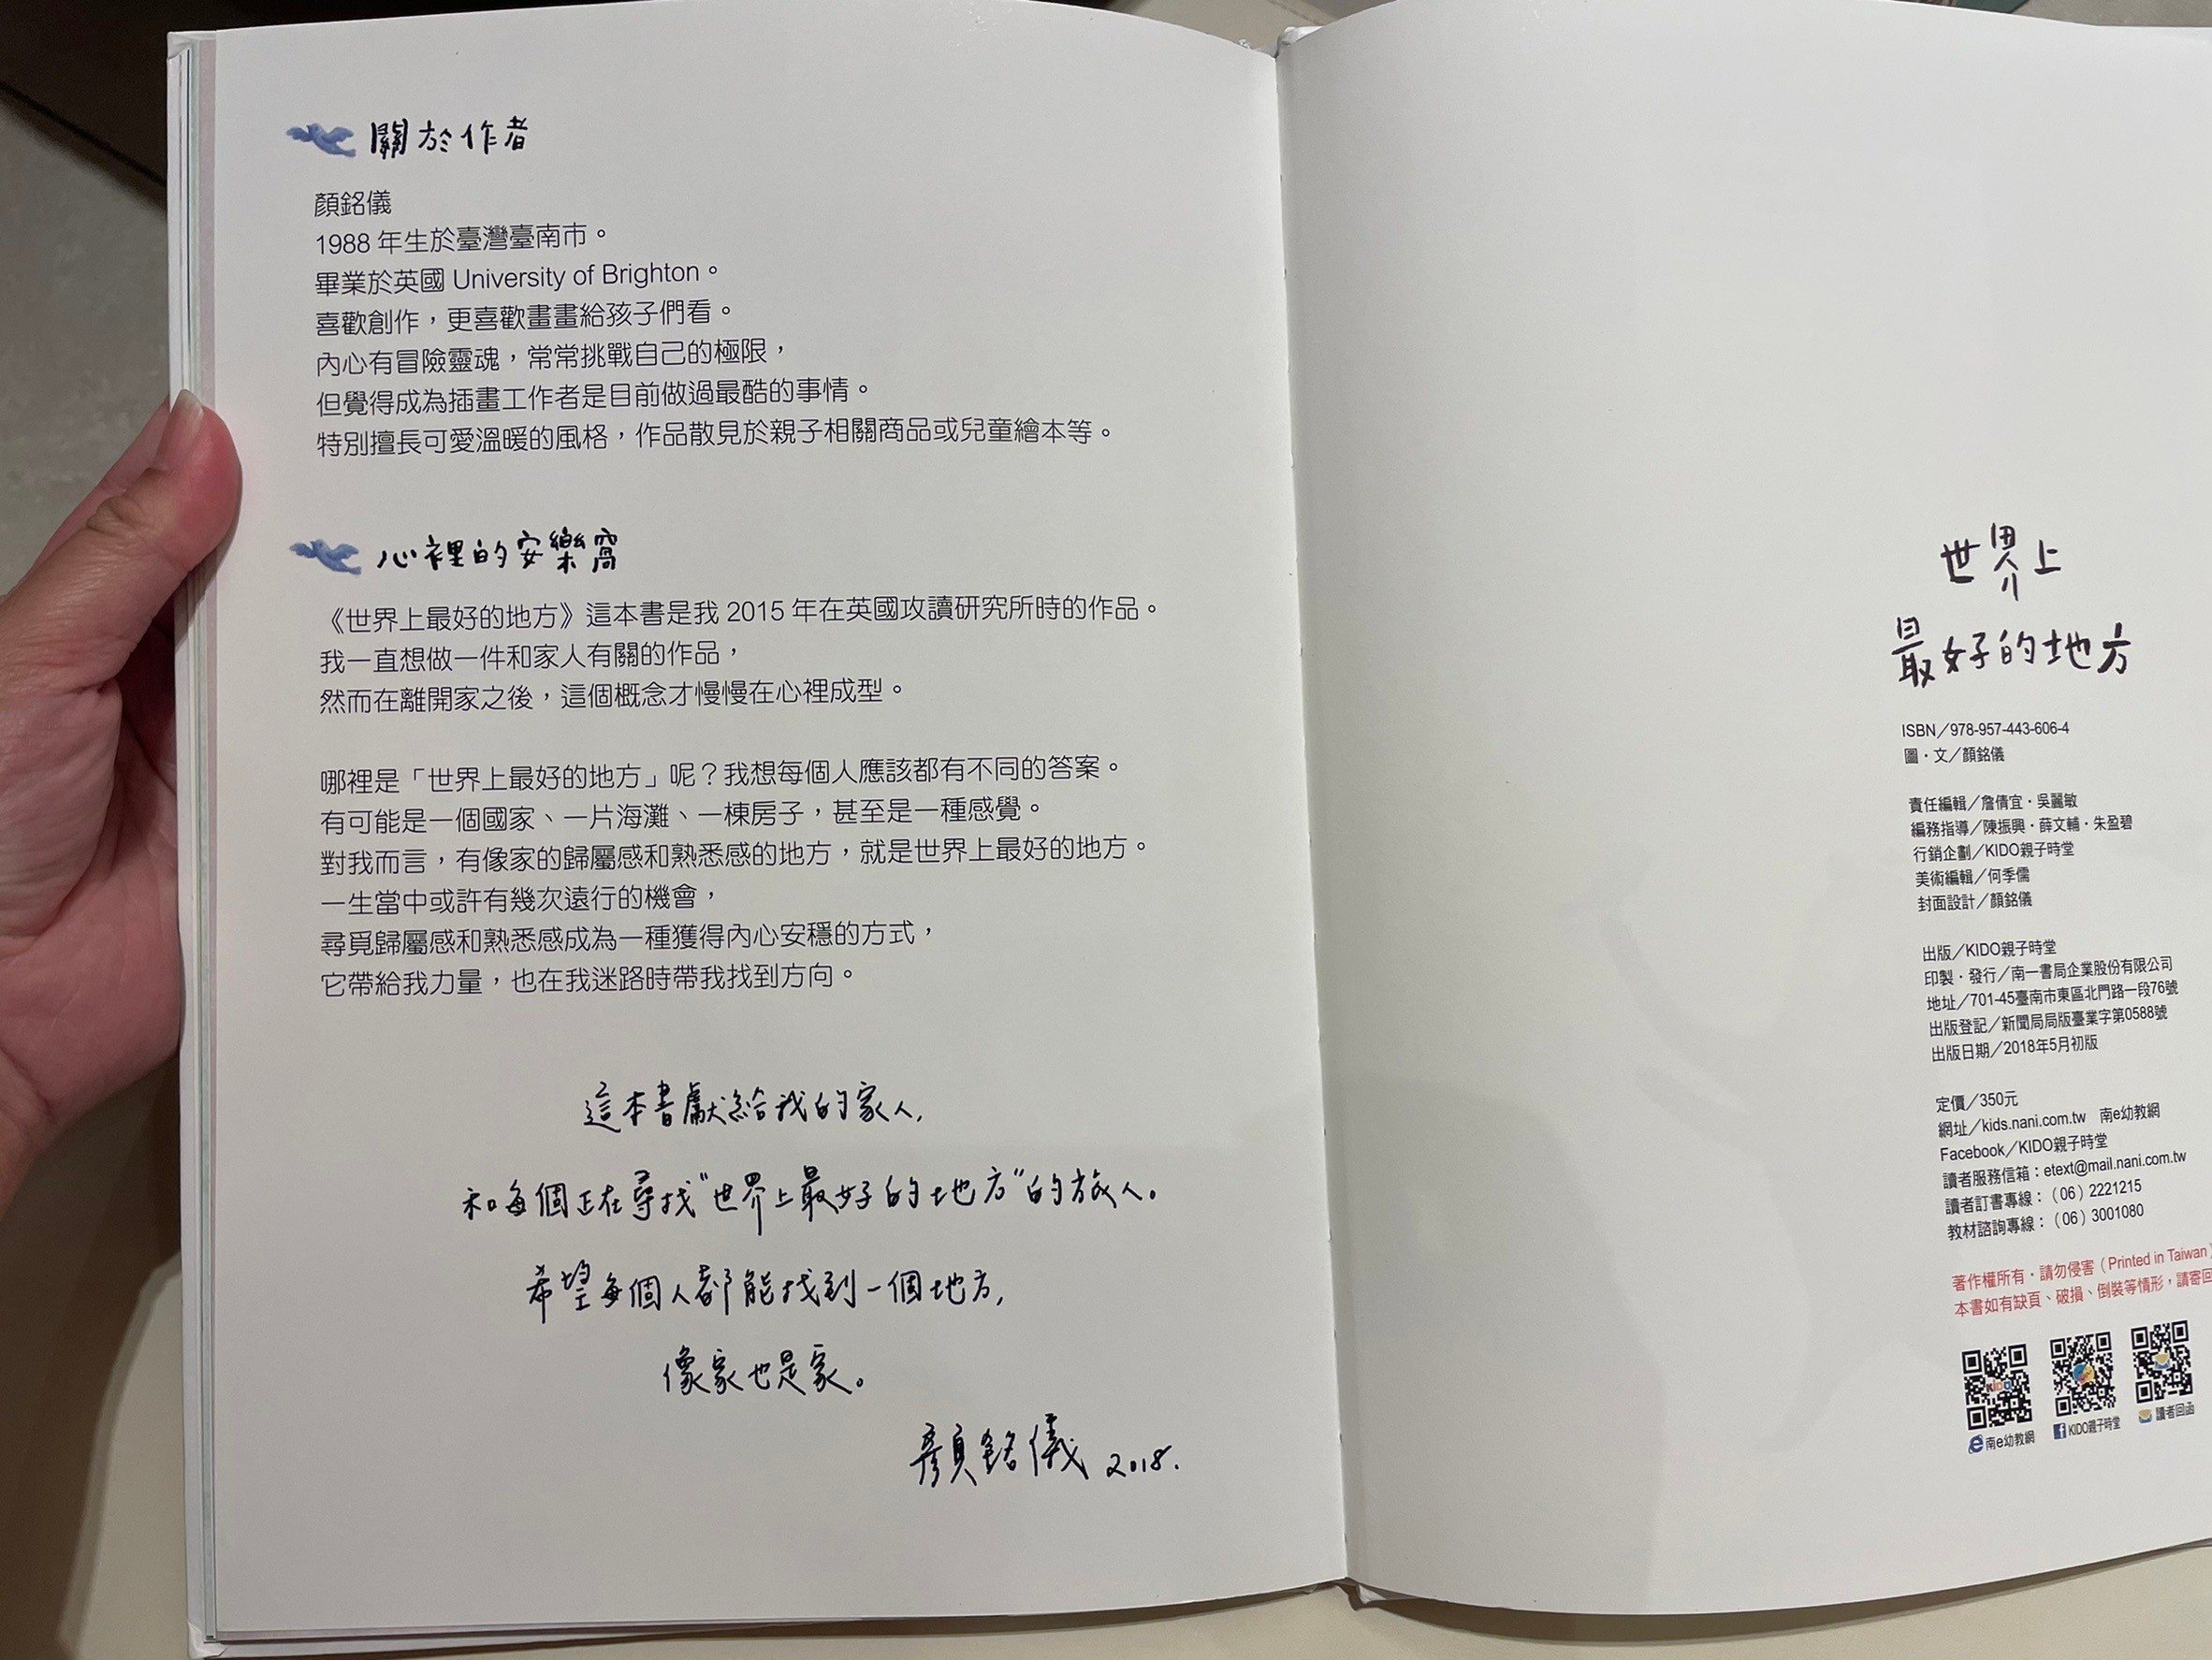 關於作者
顏銘儀
1988 年生於臺灣臺南市。
畢業於英國 University of Brighton。
喜歡創作，更喜歡畫畫給孩子們看。
內心有冒險靈魂，常常挑戰自己的極限，
但覺得成為插畫工作者是目前做過最酷的事情。
特別擅長可愛溫暖的風格，作品散見於親子相關商品或兒童繪本等。
心裡的安樂窩
《世界上最好的地方》這本書是我 2015 年在英國攻讀研究所時的作品。
我一直想做一件和家人有關的作品，
然而在離開家之後，這個概念才慢慢在心裡成型。
哪裡是「世界上最好的地方」呢？我想每個人應該都有不同的答案。
有可能是一個國家、一片海灘、一棟房子，甚至是一種感覺。
對我而言，有像家的歸屬感和熟悉感的地方，就是世界上最好的地方。
一生當中或許有幾次遠行的機會，
尋覓歸屬感和熟悉感成為一種獲得內心安穩的方式，
它帶給我力量，也在我迷路時帶我找到方向。
這本書獻給我的家人,
和每個正在尋找"世界上最好的地方"的旅人。
希望每個人都能找到一個地方,
像家也是家。
顏銘儀 2018.
世界上
最好的地方
ISBN／978-957-443-606-4
圖・文／顏銘儀
責任編輯／詹倩宜・吳麗敏
編務指導／陳振興・薛文輔・朱盈碧
行銷企劃／KIDO親子時堂
美術編輯／何季儒
封面設計／顏銘儀
出版／KIDO親子時堂
印製・發行／南一書局企業股份有限公司
地址／701-45臺南市東區北門路一段76號
出版登記／新聞局局版臺業字第0588號
出版日期／2018年5月初版
定價／350元
網址／kids.nani.com.tw　南e幼教網
Facebook／KIDO親子時堂
讀者服務信箱：etext@mail.nani.com.tw
讀者訂書專線：（06）2221215
教材諮詢專線：（06）3001080
著作權所有・請勿侵害（Printed in Taiwan）
本書如有缺頁、破損、倒裝等情形，請寄回
KIDO
南e幼教網
KIDO親子時堂
讀者回函